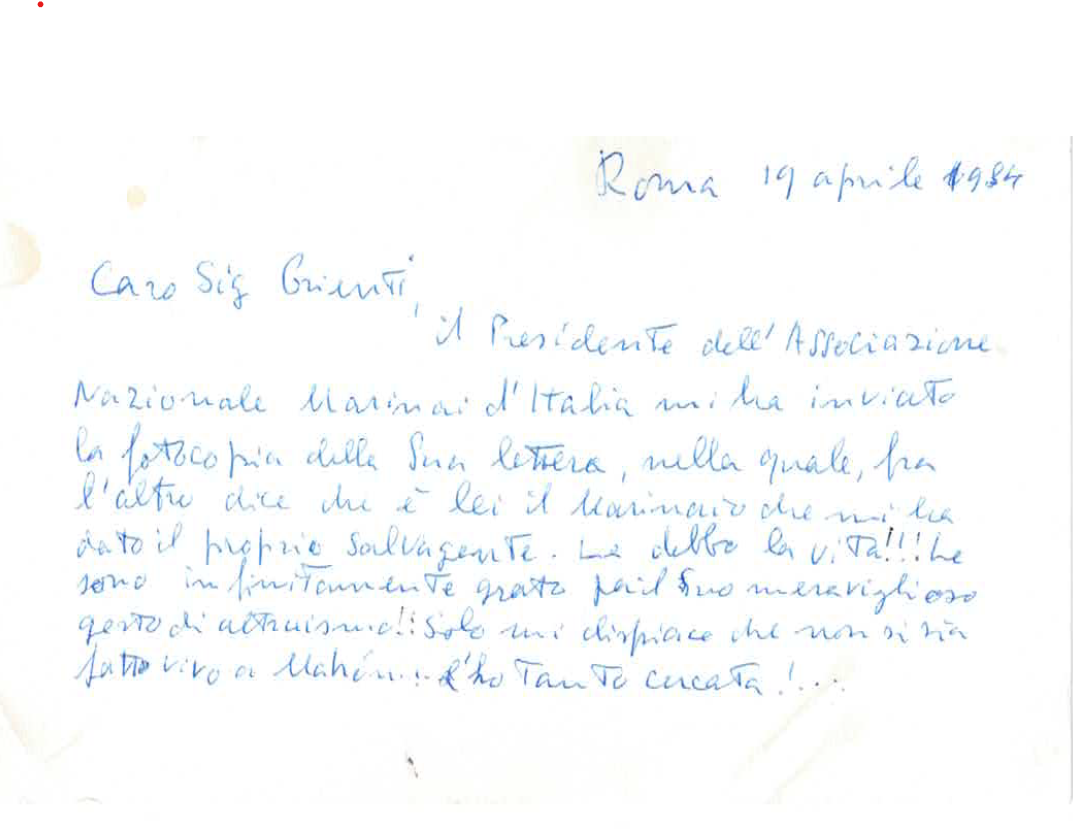 Roma 19 aprile 1984
Caro Sig Grienti,
il Presidente dell'Associazione
Nazionale Marinai d'Italia mi ha inviato
la fotocopia della Sua lettera, nella quale, fra
l'altro dice che è lei il Marinaio che mi ha
dato il proprio salvagente. Le debbo la vita!!! Le
sono infinitamente grato per il Suo meraviglioso
gesto di altruismo!! Solo mi dispiace che non si sia
fatto vivo a Mahón... L'ho tanto cercata!...